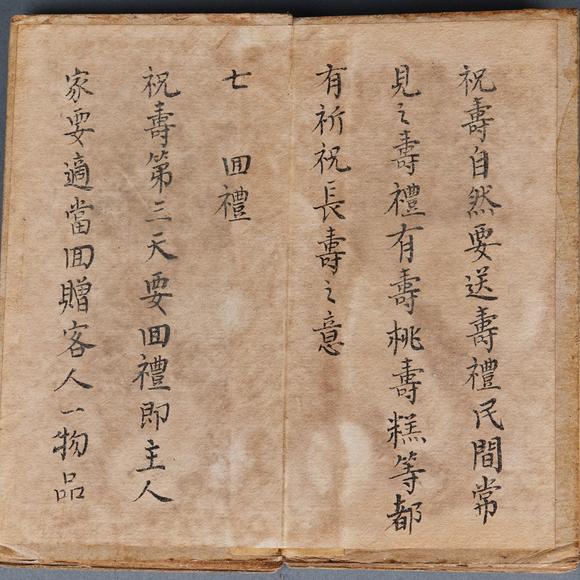 祝壽自然要送壽禮民間常
見之壽禮有壽桃壽糕等都
有祈祝長壽之意
七 囬禮
祝壽第三天要囬禮即主人
家要適當囬贈客人一物品